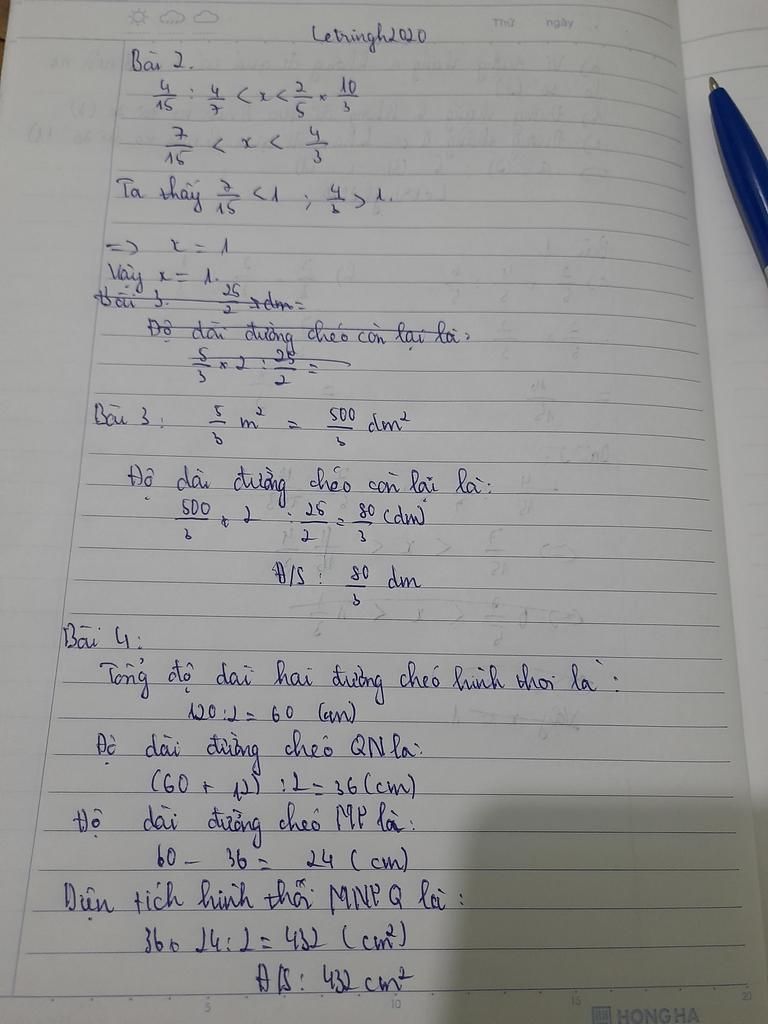 Thứ ngày
Letringh2020
Bài 2.
4/15 : 4/7 < x < 2/5 × 10/3
7/15 < x < 4/3
Ta thấy 7/15 < 1 ; 4/3 > 1.
=> x = 1
Vậy x = 1.
Bài 3. 25/2 dm =
Độ dài đường chéo còn lại là:
5/3 × 2 : 25/2 =
Bài 3: 5/3 m² = 500/3 dm²
Độ dài đường chéo còn lại là:
500/3 × 2 : 25/2 = 80/3 (dm)
Đ/S : 80/3 dm
Bài 4:
Tổng độ dài hai đường chéo hình thoi là:
120:2 = 60 (cm)
Độ dài đường chéo QN là:
(60 + 12) :2 = 36 (cm)
Độ dài đường chéo MP là:
60 - 36 = 24 (cm)
Diện tích hình thoi MNPQ là:
36 × 24:2 = 432 (cm²)
Đ/S: 432 cm²
5 10 15 20
HONG HA